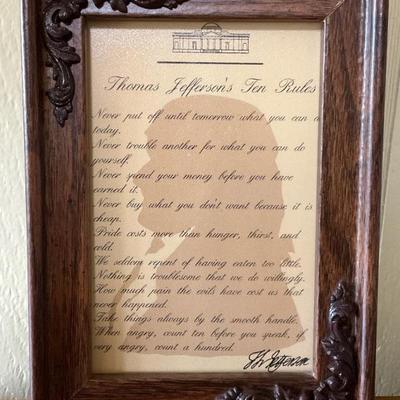 Thomas Jefferson's Ten Rules
Never put off until tomorrow what you can d
today.
Never trouble another for what you can do
yourself.
Never spend your money before you have
earned it.
Never buy what you don't want because it is
cheap.
Pride costs more than hunger, thirst, and
cold.
We seldom repent of having eaten too little.
Nothing is troublesome that we do willingly.
How much pain the evils have cost us that
never happened.
Take things always by the smooth handle.
When angry, count ten before you speak, if
very angry, count a hundred.
Th Jefferson